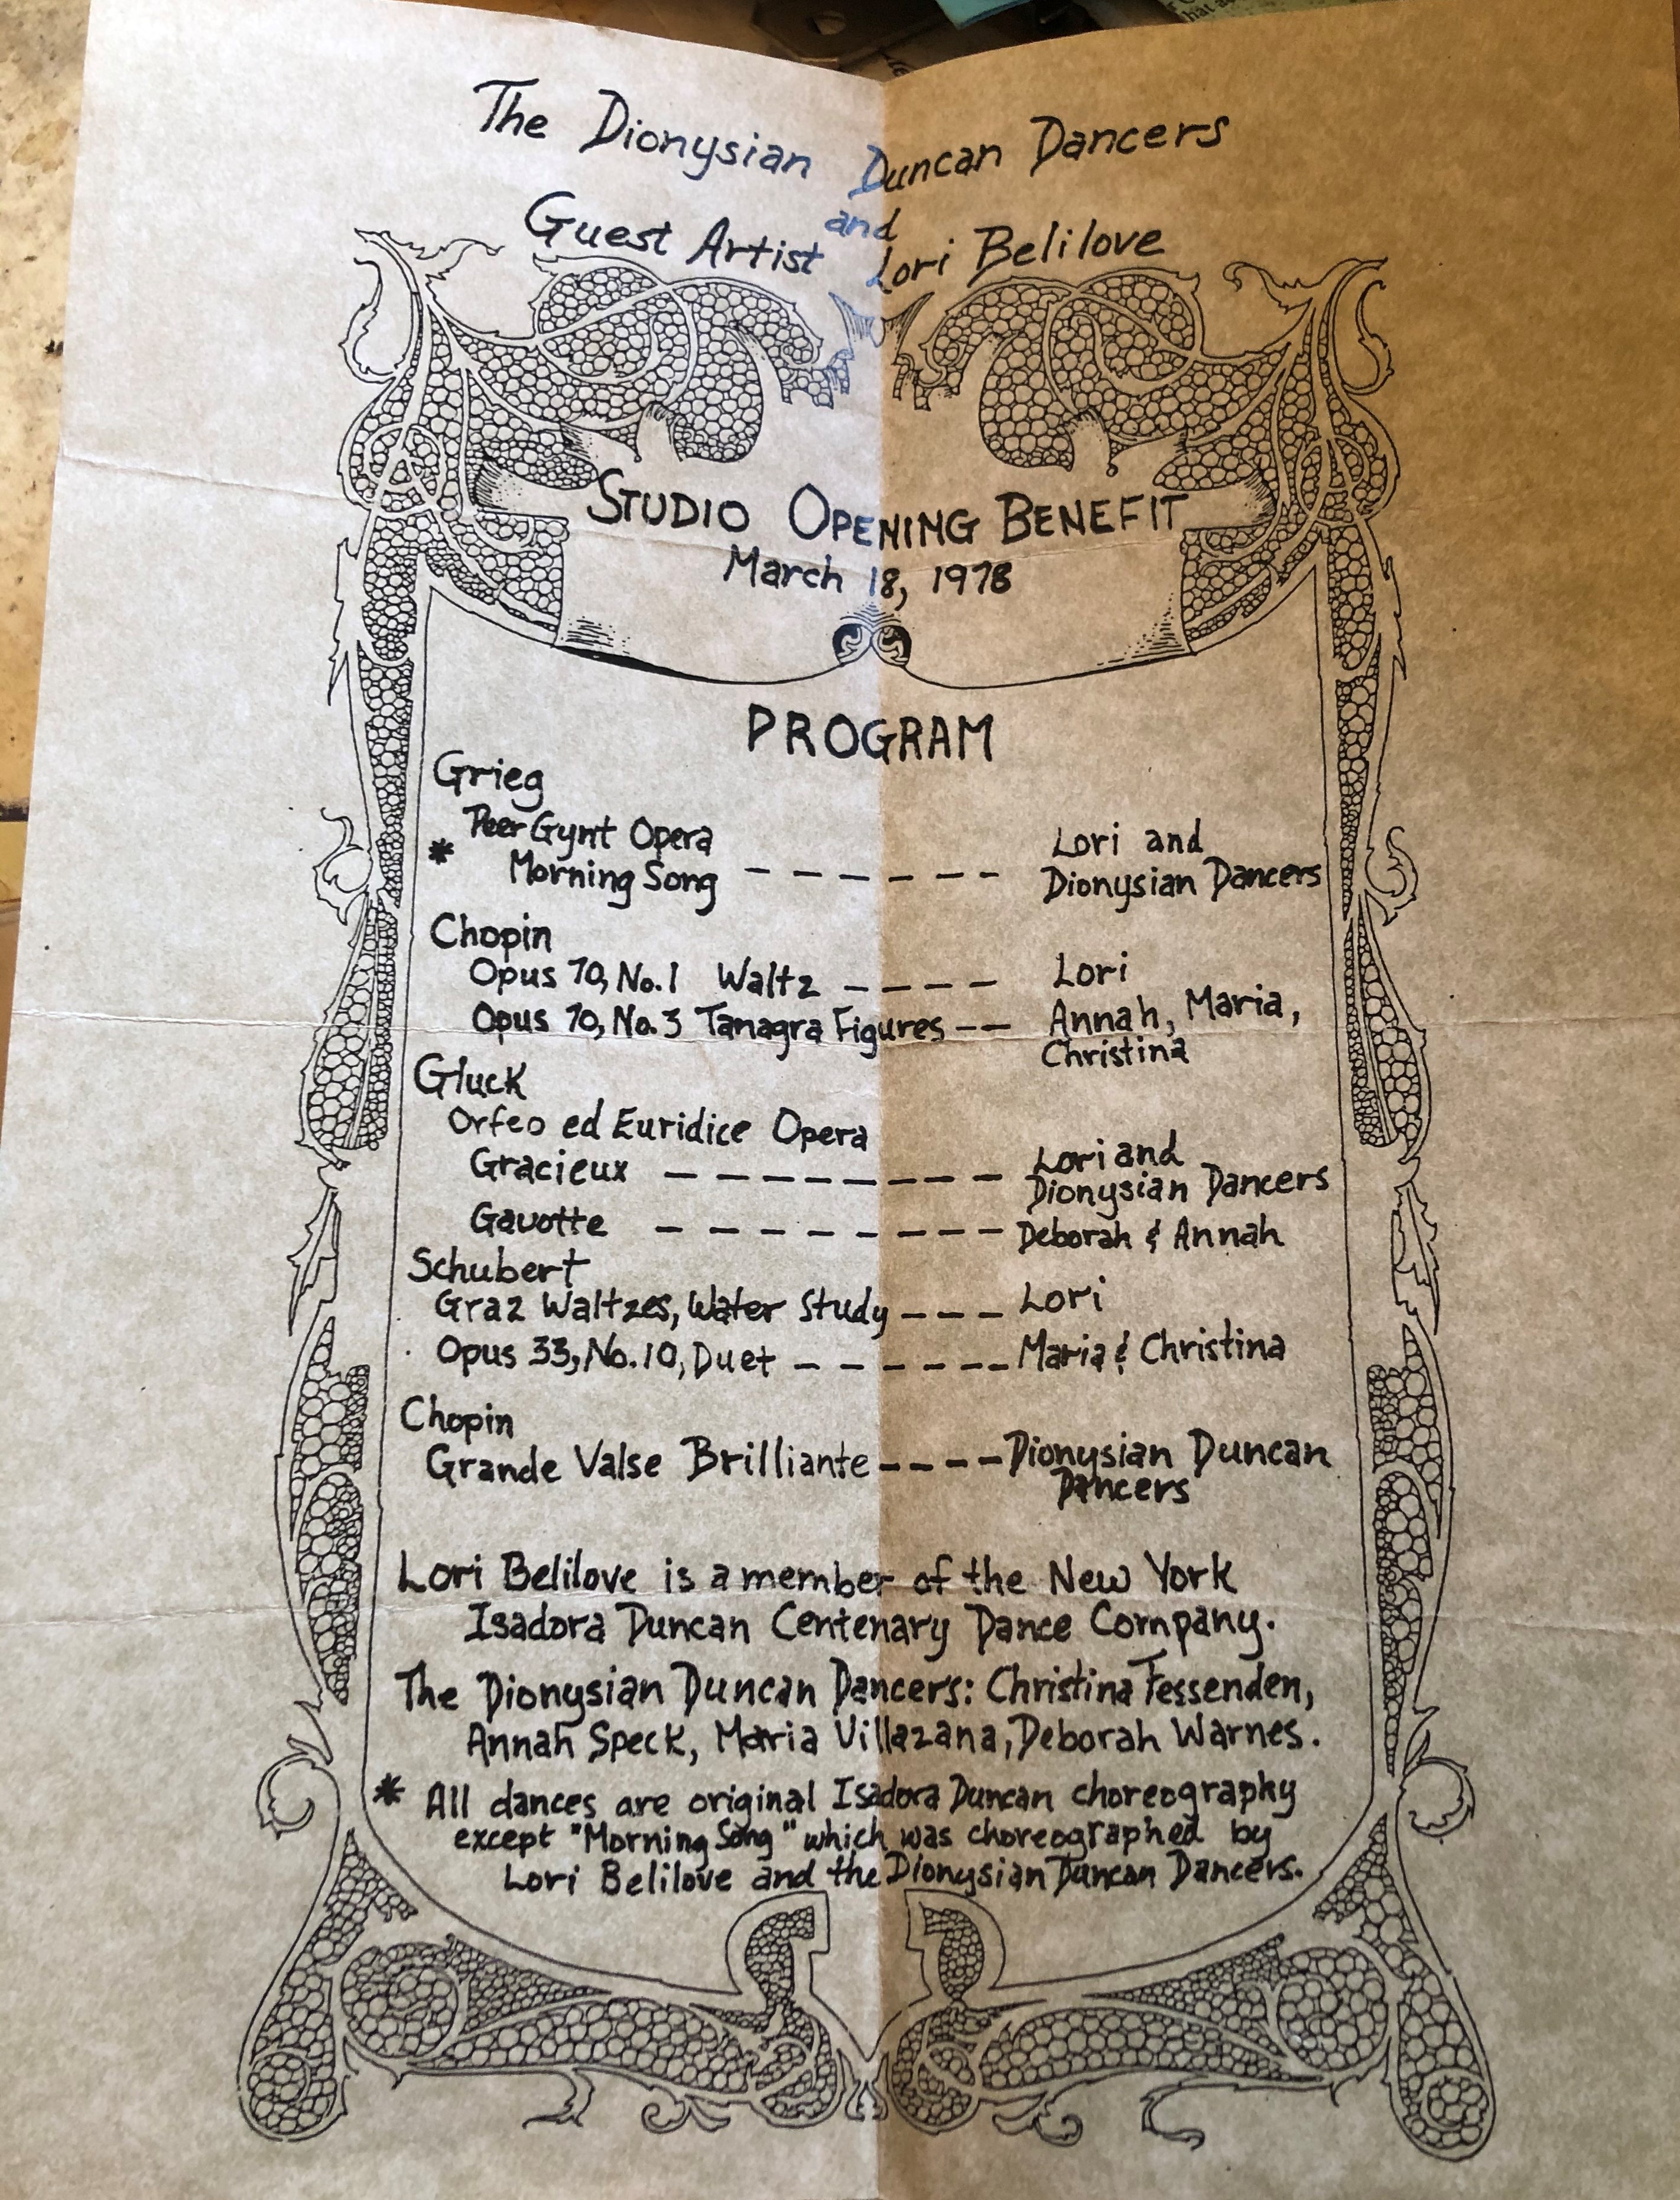 The Dionysian Duncan Dancers
and
Guest Artist Lori Belilove
STUDIO OPENING BENEFIT
March 18, 1978
PROGRAM
Grieg
Peer Gynt Opera
* Morning Song ------ Lori and Dionysian Dancers
Chopin
Opus 70, No. 1 Waltz ---- Lori
Opus 70, No. 3 Tanagra Figures -- Annah, Maria,
Christina
Gluck
Orfeo ed Euridice Opera
Gracieux --------- Lori and Dionysian Dancers
Gavotte --------- Deborah & Annah
Schubert
Graz Waltzes, Water Study --- Lori
Opus 33, No. 10, Duet ------ Maria & Christina
Chopin
Grande Valse Brilliante ---- Dionysian Duncan
Dancers
Lori Belilove is a member of the New York
Isadora Duncan Centenary Dance Company.
The Dionysian Duncan Dancers: Christina Fessenden,
Annah Speck, Maria Villazana, Deborah Warnes.
* All dances are original Isadora Duncan choreography
except "Morning Song" which was choreographed by
Lori Belilove and the Dionysian Duncan Dancers.